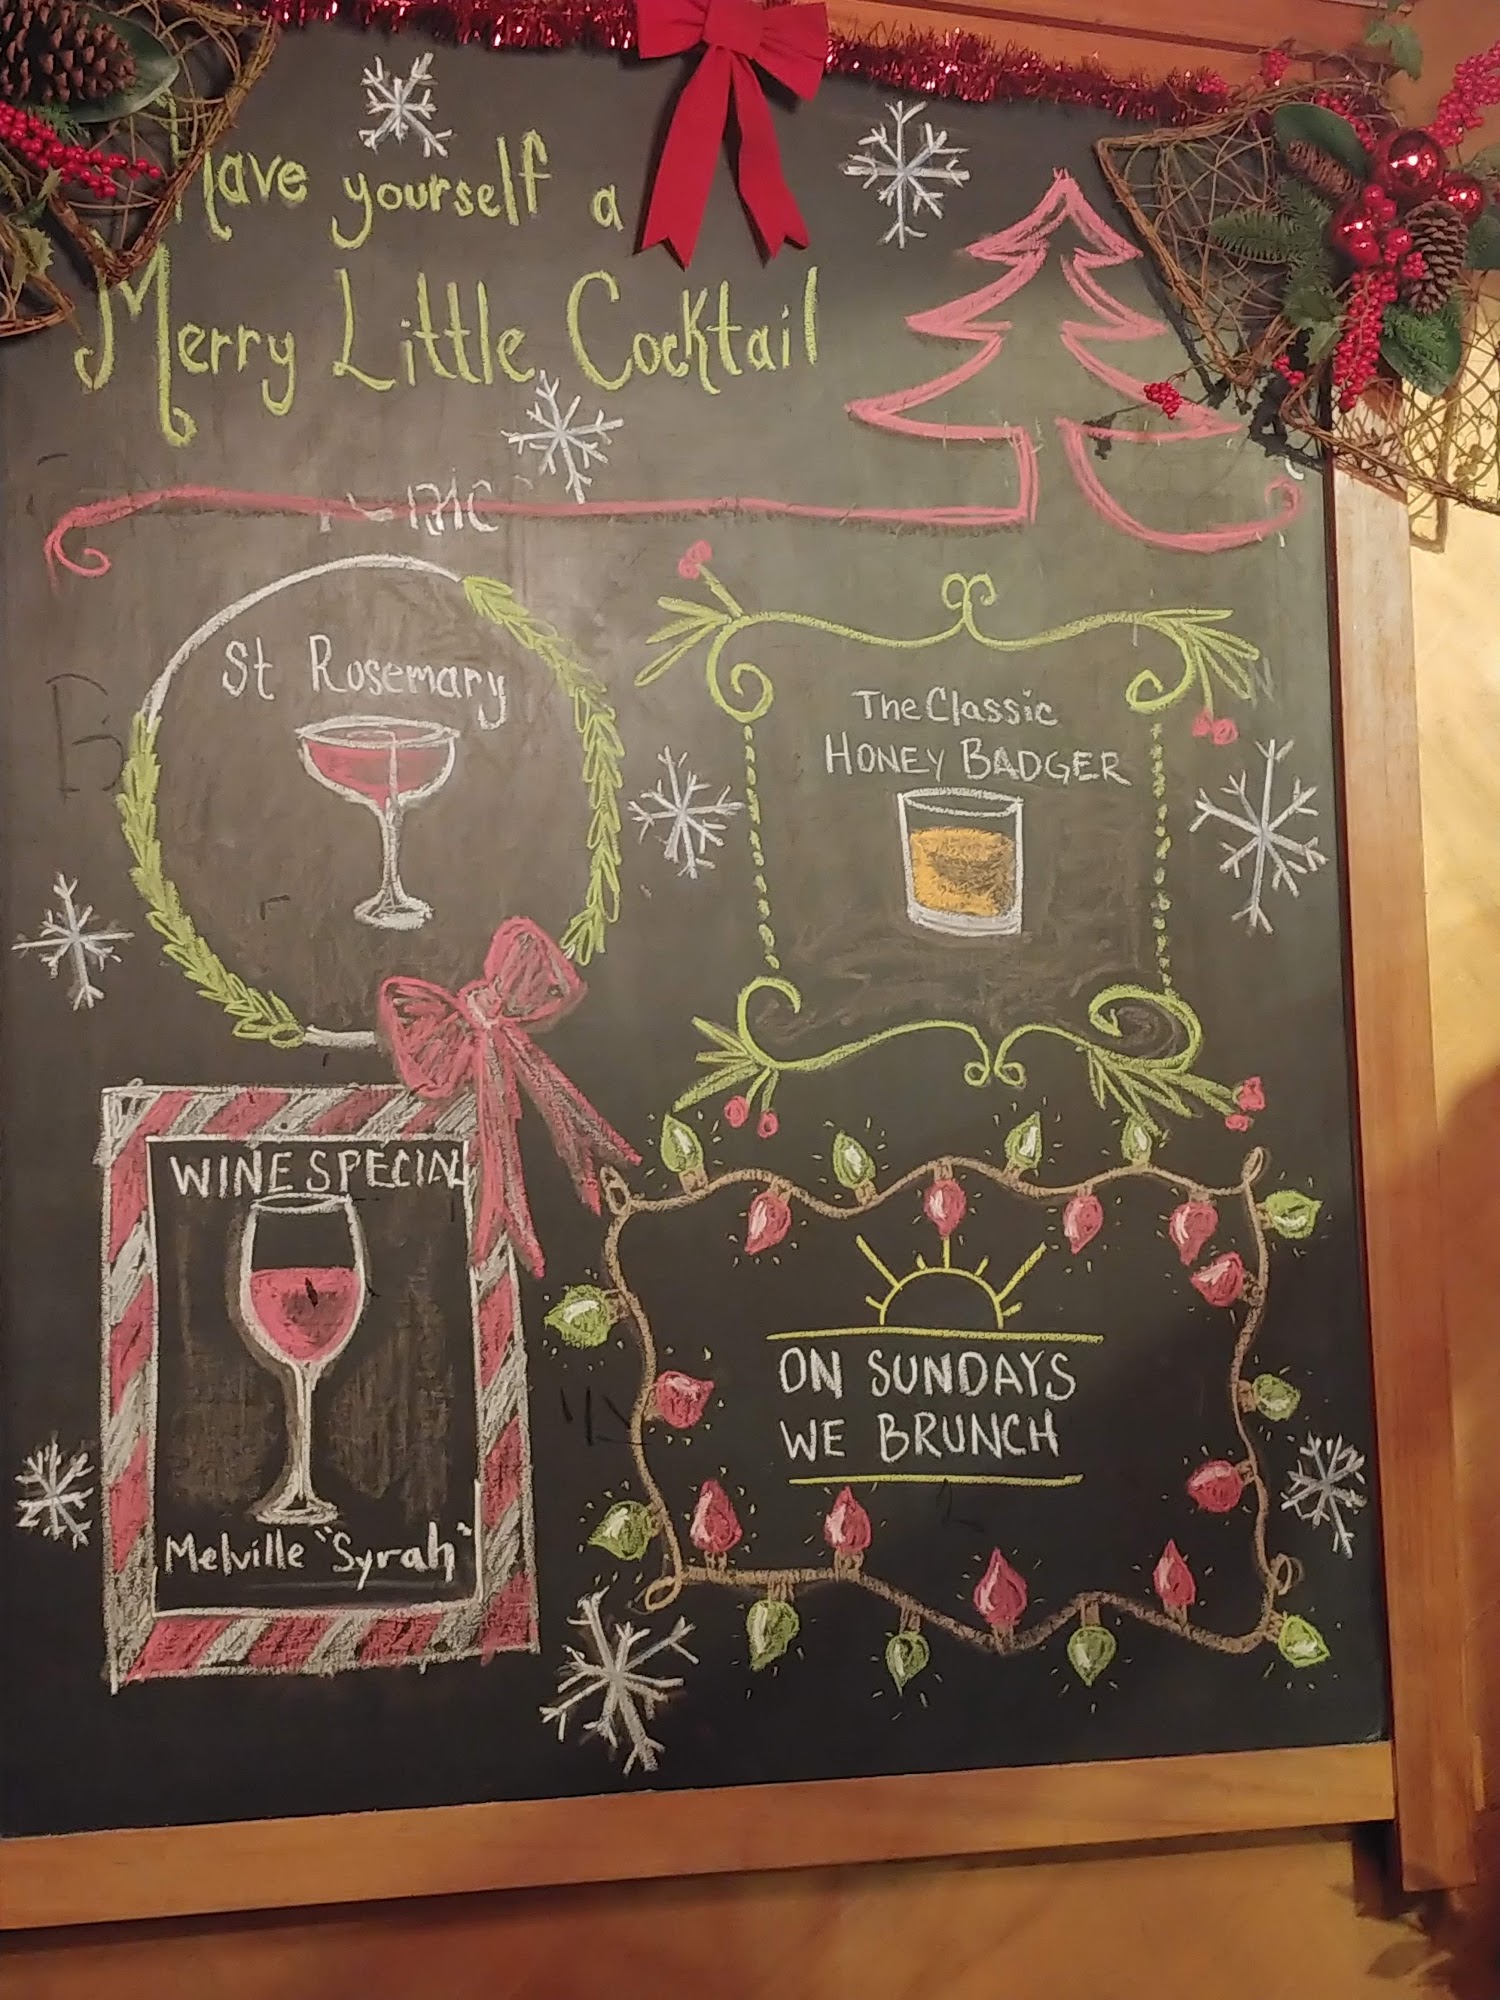 Have yourself a
Merry Little Cocktail
St Rosemary
The Classic
HONEY BADGER
WINE SPECIAL
Melville "Syrah"
ON SUNDAYS
WE BRUNCH